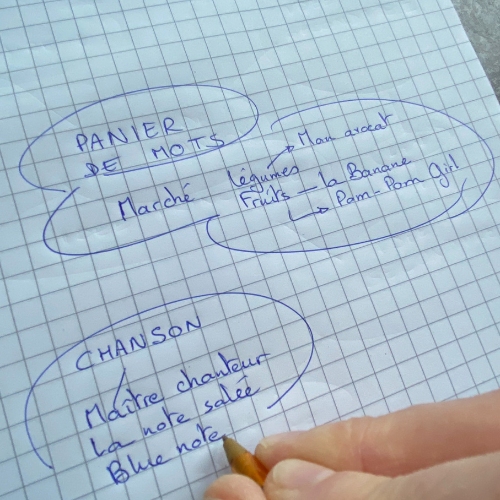 PANIER
DE MOTS
Marché
légumes
Mon avocat
Fruits - la Banane
Pam-Pam Girl
CHANSON
Maître chanteur
La note salée
Blue note